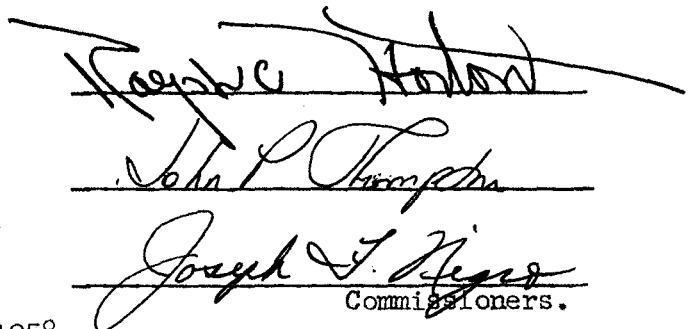 Ralph C Horton
John P Thompson
Joseph F. Nigro
Commissioners.
1958